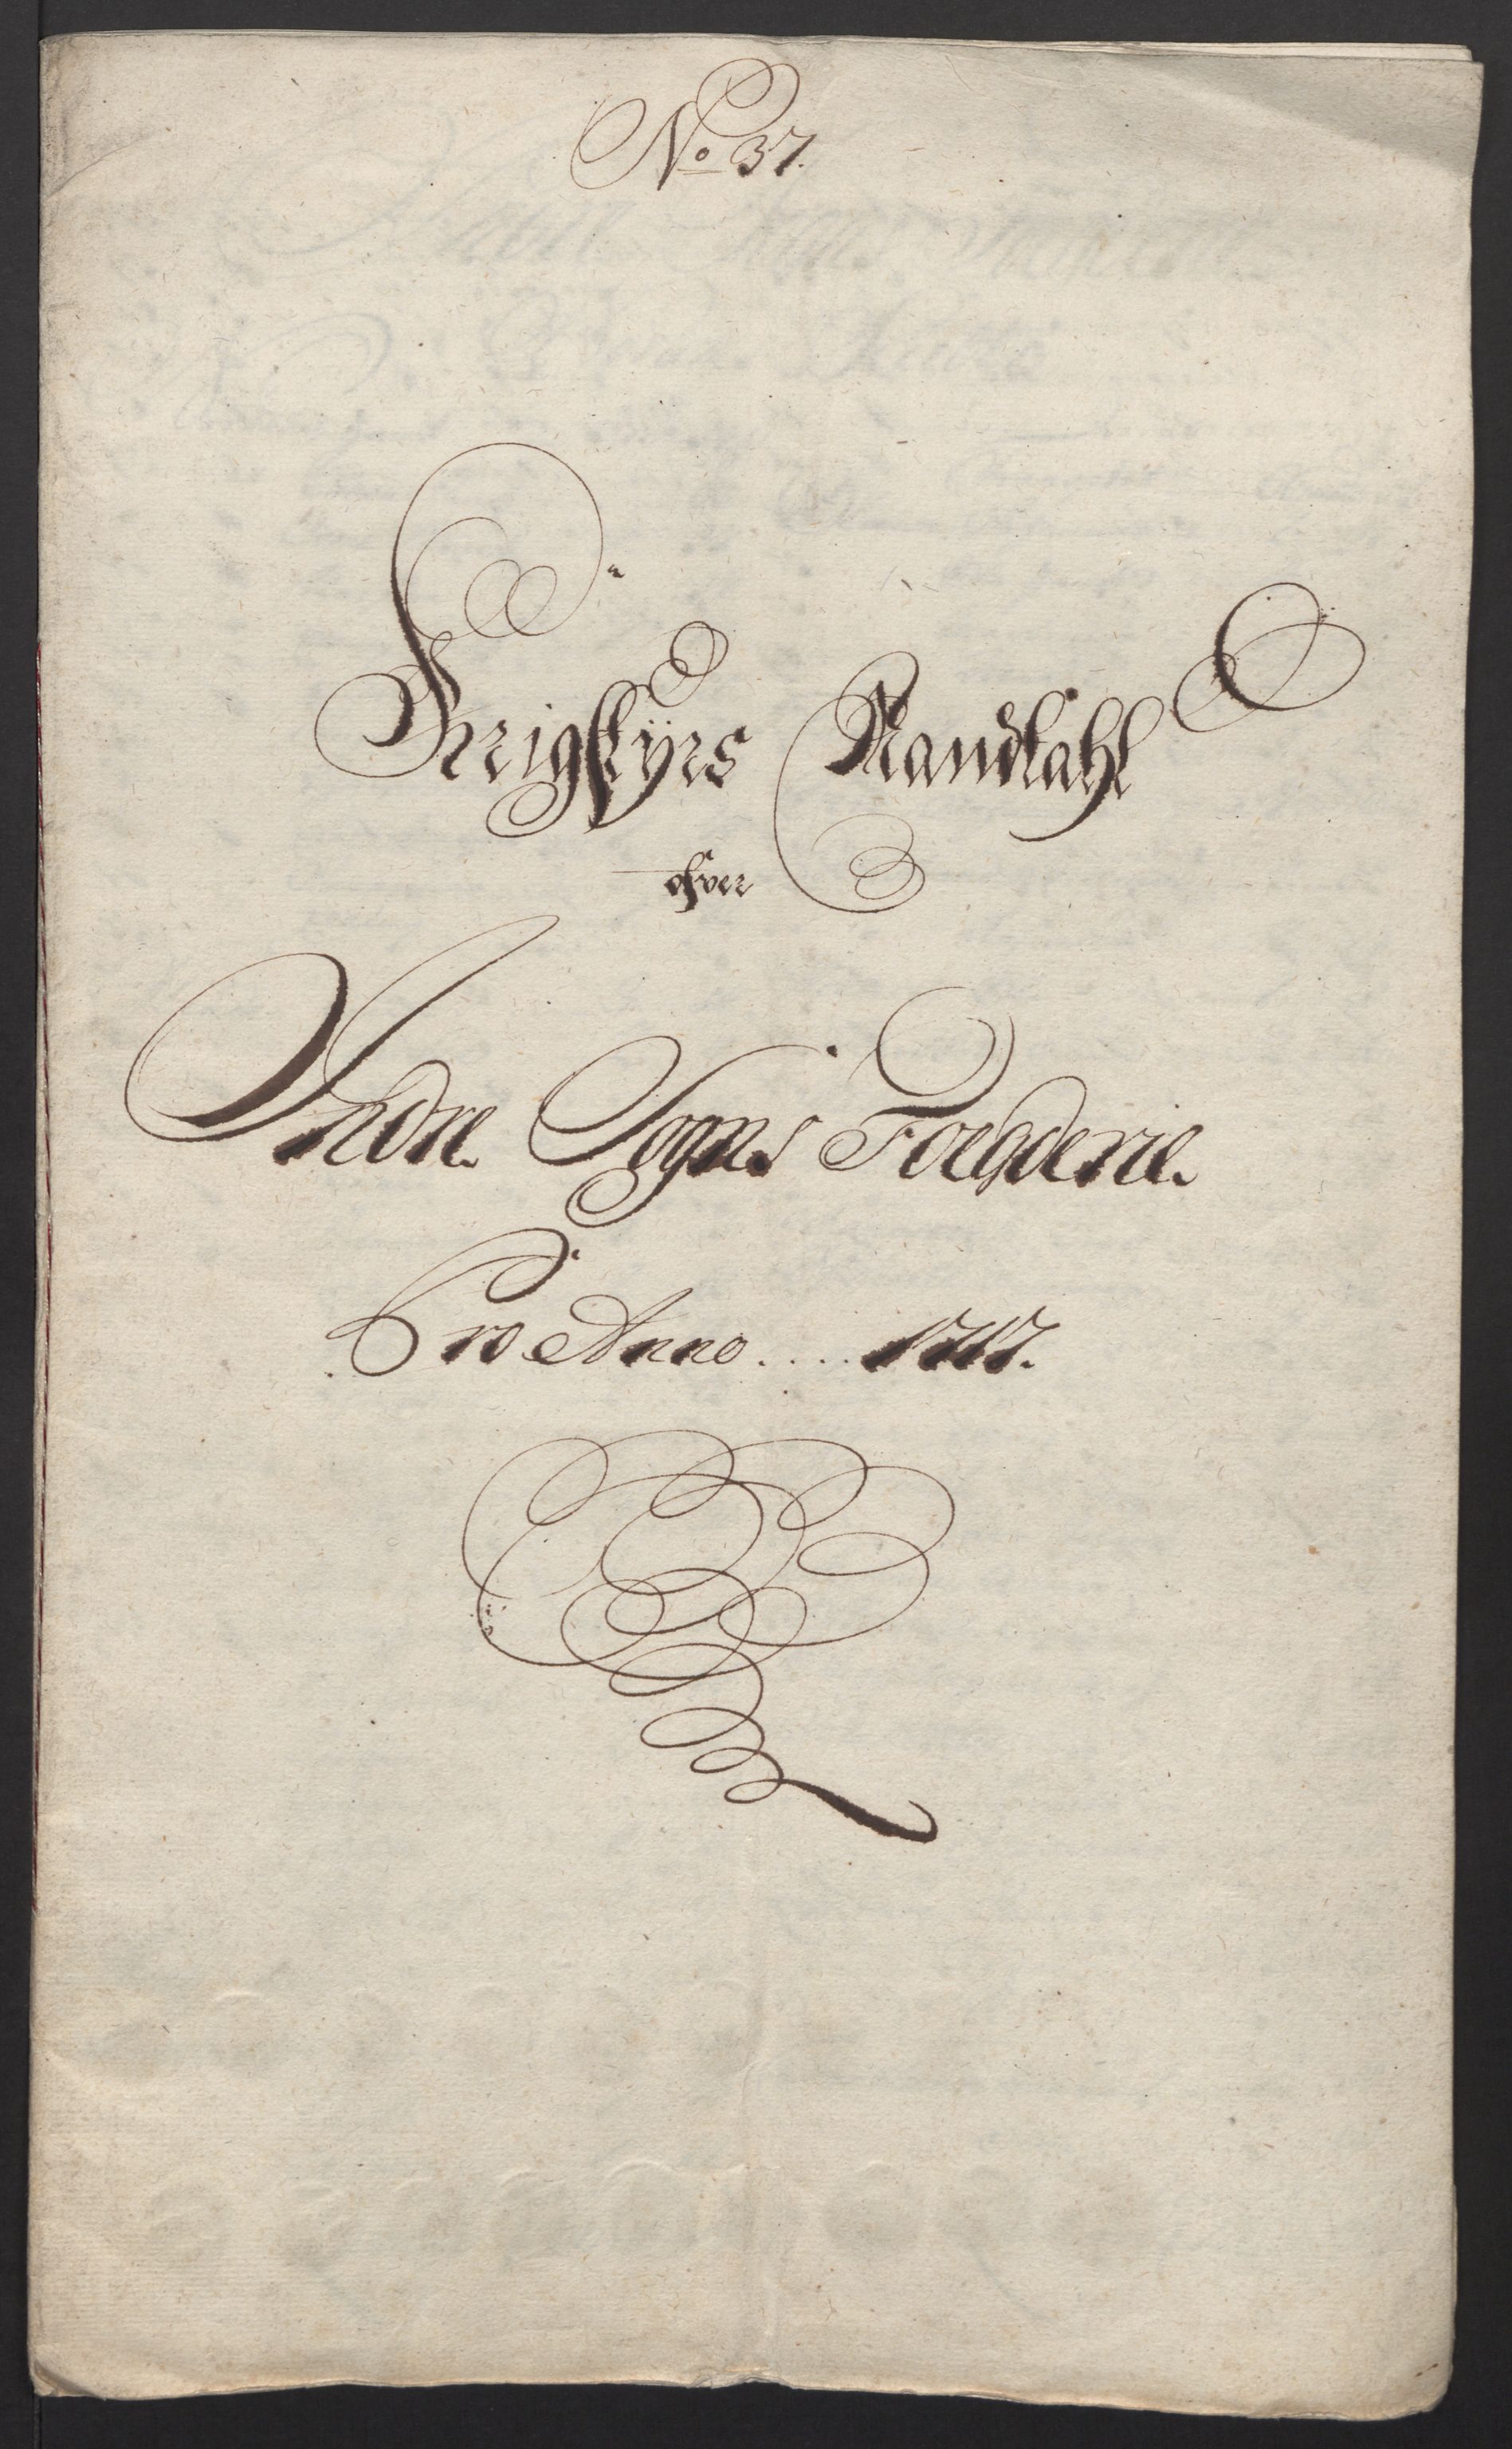 No 37.
Krigstÿrs Mandtahl
ofver
Indre Sogns Foegderie.
Pro Anno .... 1717.